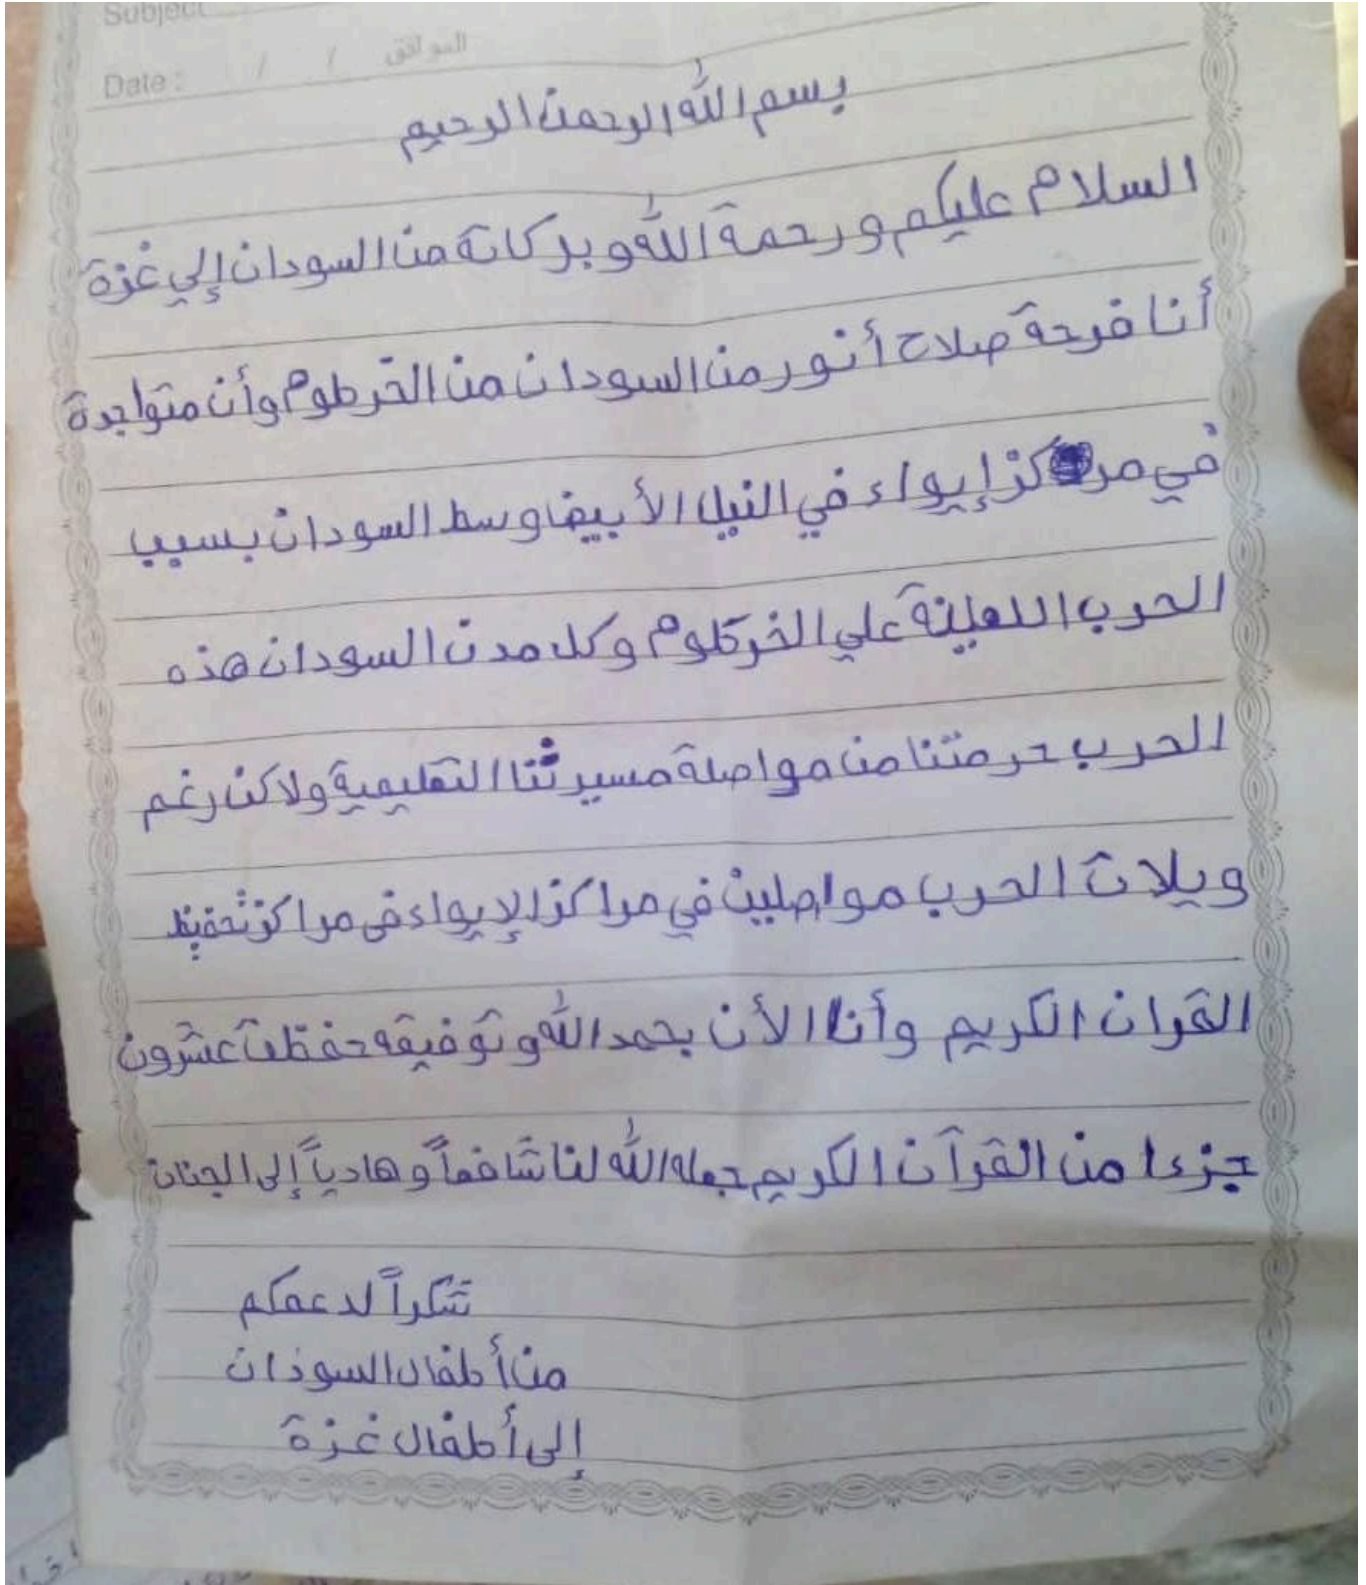 Subject
Date : / / الموافق
بسم الله الرحمن الرحيم
السلام عليكم ورحمة الله وبركاتة من السودان إلي غزة
أنا فرحة صلاح أنور من السودان من الخرطوم وأن متواجدة
في مركز إيواء في النيل الأبيض وسط السودان بسبب
الحرب اللعلينة علي الخرطوم وكل مدن السودان هذه
الحرب حرمتنا من مواصلة مسيرتنا التعليمية ولاكن رغم
ويلات الحرب مواصلين في مراكز الإيواء في مراكز تحفيظ
القران الكريم وأنا الأن بحمد الله وتوفيقه حفظت عشرون
جزءا من القرآن الكريم جعله الله لنا شافعاً وهادياً إلى الجنان
شكراً لدعمكم
من أطفال السودان
إلى أطفال غزة